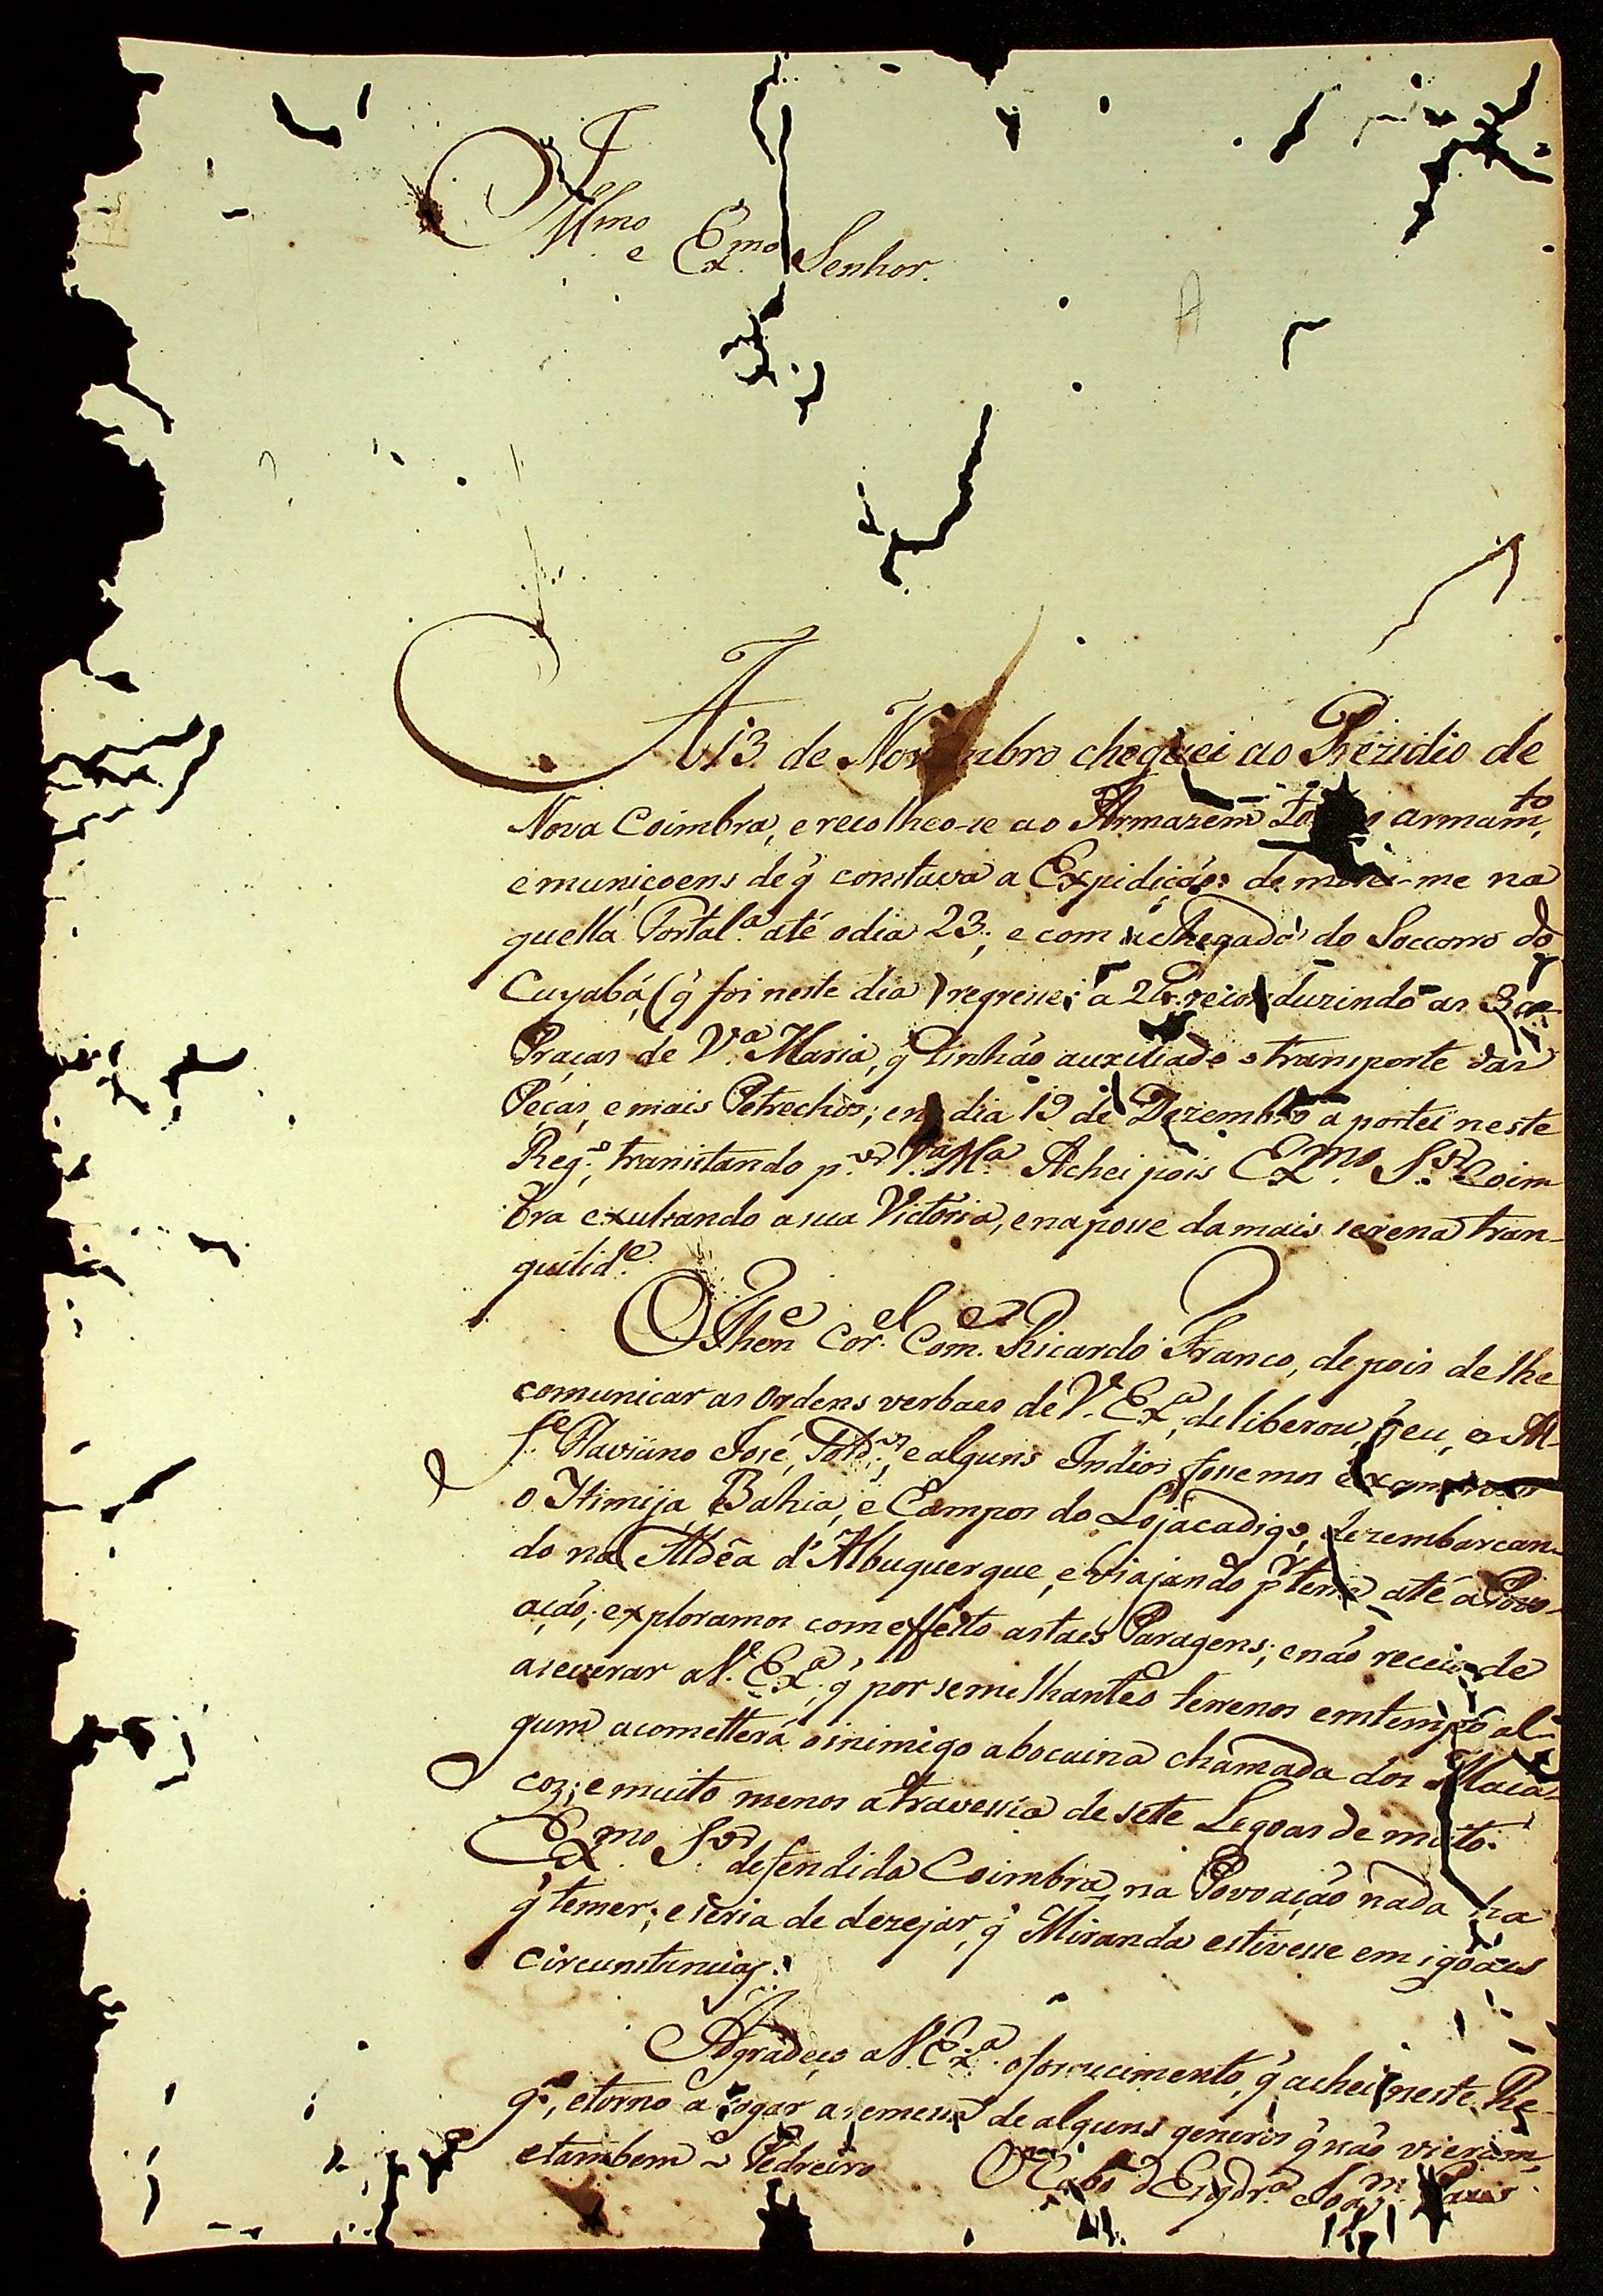 Illmo. e Exmo. Senhor.
A 13 de Novembro cheguei ao Prezidio de
Nova Coimbra, e recolheo-se ao Armazem armamto.,
e muniçoens de q̃ constava a Expidição: demorei-me na
quella Fortal.a até o dia 23; e com a chegada do Soccorro do
Cuyabá, (q̃ foi neste dia) regressei a duzindo as
Praças de V.a Maria, q̃ tinhão auxiliado o transporte das
Peças, e mais Petrechos; e no dia 19 de Dezembro aportei neste
Reg.o, transitando p.a V.a M.a Achei pois Exmo. Sr. Coim
bra exultando a sua Victoria, e na posse da mais serena tran-
quilid.e
O Then.e Cor.el Com.e Ricardo Franco, depois de lhe
comunicar as Ordens verbaes de V. Ex.a, deliberou, q̃ eu, o Al-
f.e Flaviano José, e alguns Indios fossemos examinar
o Itimija, Bahia, e Campos do Lojacadigo, dezembarcan-
do na Aldêa d'Albuquerque, e viajando p.r terra até a Povo-
ação; exploramos com effeito as taes Paragens; e não receio de
aseverar a V. Ex.a, q̃ por semelhantes terrenos em tempo al-
gum acometterá o inimigo a bocaina chamada dos Maca-
cos; e muito menos a travessia de sete Legoas de mato.
Exmo. Sr. defendida Coimbra, na Povoação nada ha
q̃ temer; e seria de dezejar, q̃ Miranda estivesse em igoaes
circunstancias.
Agradeço a V. Ex.a o fornecimento, q̃ achei neste Re-
g.o, e torno a rogar a remessa de alguns generos q̃ não vieram,
e tambem o Pedreiro O Cabo d'Esqdr.a Joaq.m